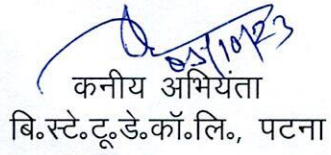 05/10/23
कनीय अभियंता
बि॰स्टे॰टू॰डे॰कॉ॰लि॰, पटना